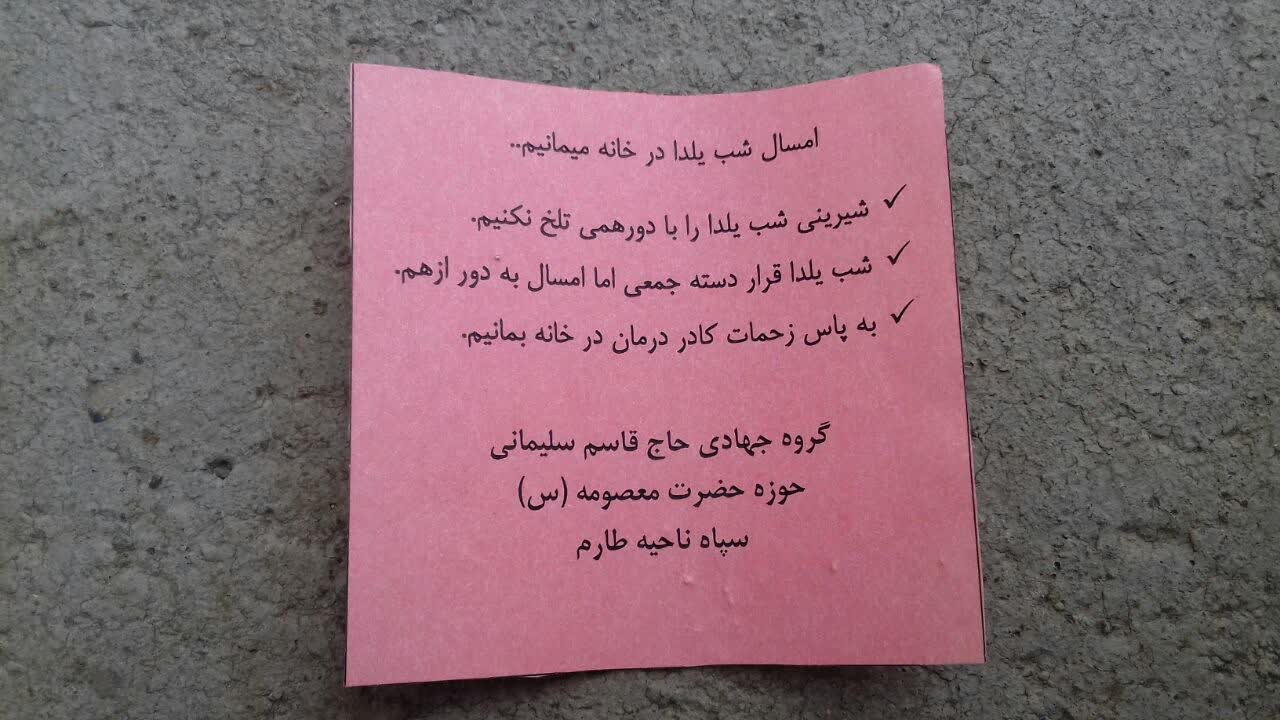 امسال شب یلدا در خانه میمانیم..
✓ شیرینی شب یلدا را با دورهمی تلخ نکنیم.
✓ شب یلدا قرار دسته جمعی اما امسال به دور ازهم.
✓ به پاس زحمات کادر درمان در خانه بمانیم.
گروه جهادی حاج قاسم سلیمانی
حوزه حضرت معصومه (س)
سپاه ناحیه طارم